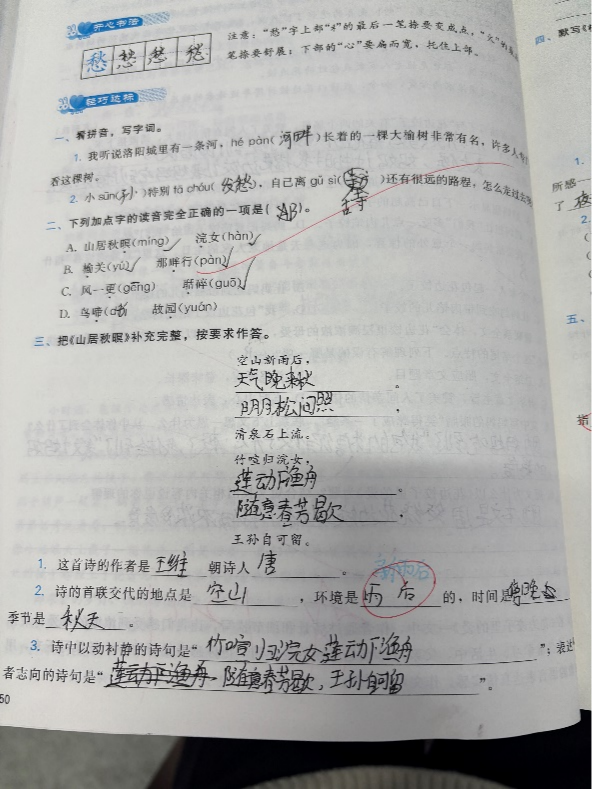 开心书法
愁 愁 愁 愁
注意：“愁”字上部“禾”的最后一笔捺要变成点，“火”的
笔捺要舒展；下部的“心”要扁而宽，托住上部。
轻巧达标
一、看拼音，写字词。
1. 我听说洛阳城里有一条河，hé pàn(河畔)长着的一棵大榆树非常有名，许多人
看这棵树。
2. 小sūn(孙)特别fā chóu(发愁)，自己离gù shi( )还有很远的路程，怎么
二、下列加点字的读音完全正确的一项是( AB )。
A. 山居秋暝(míng) 浣女(hàn)
B. 榆关(yú) 那畔行(pàn)
C. 风一更(gēng) 聒碎(guō)
D. 鸟啼 故园(yuán)
三、把《山居秋暝》补充完整，按要求作答。
空山新雨后，
天气晚来秋。
明月松间照，
清泉石上流。
竹喧归浣女，
莲动下渔舟。
随意春芳歇，
王孙自可留。
1. 这首诗的作者是 王维 朝诗人 唐 。
新雨后
2. 诗的首联交代的地点是 空山 ，环境是 雨后 的，时间是
季节是 秋天 。
3. 诗中以动衬静的诗句是“竹喧归浣女莲动下渔舟”；表达
者志向的诗句是“莲动下渔舟 随意春芳歇，王孙自可留”。
50
四、默写《
1.
所感
了 夜
五、